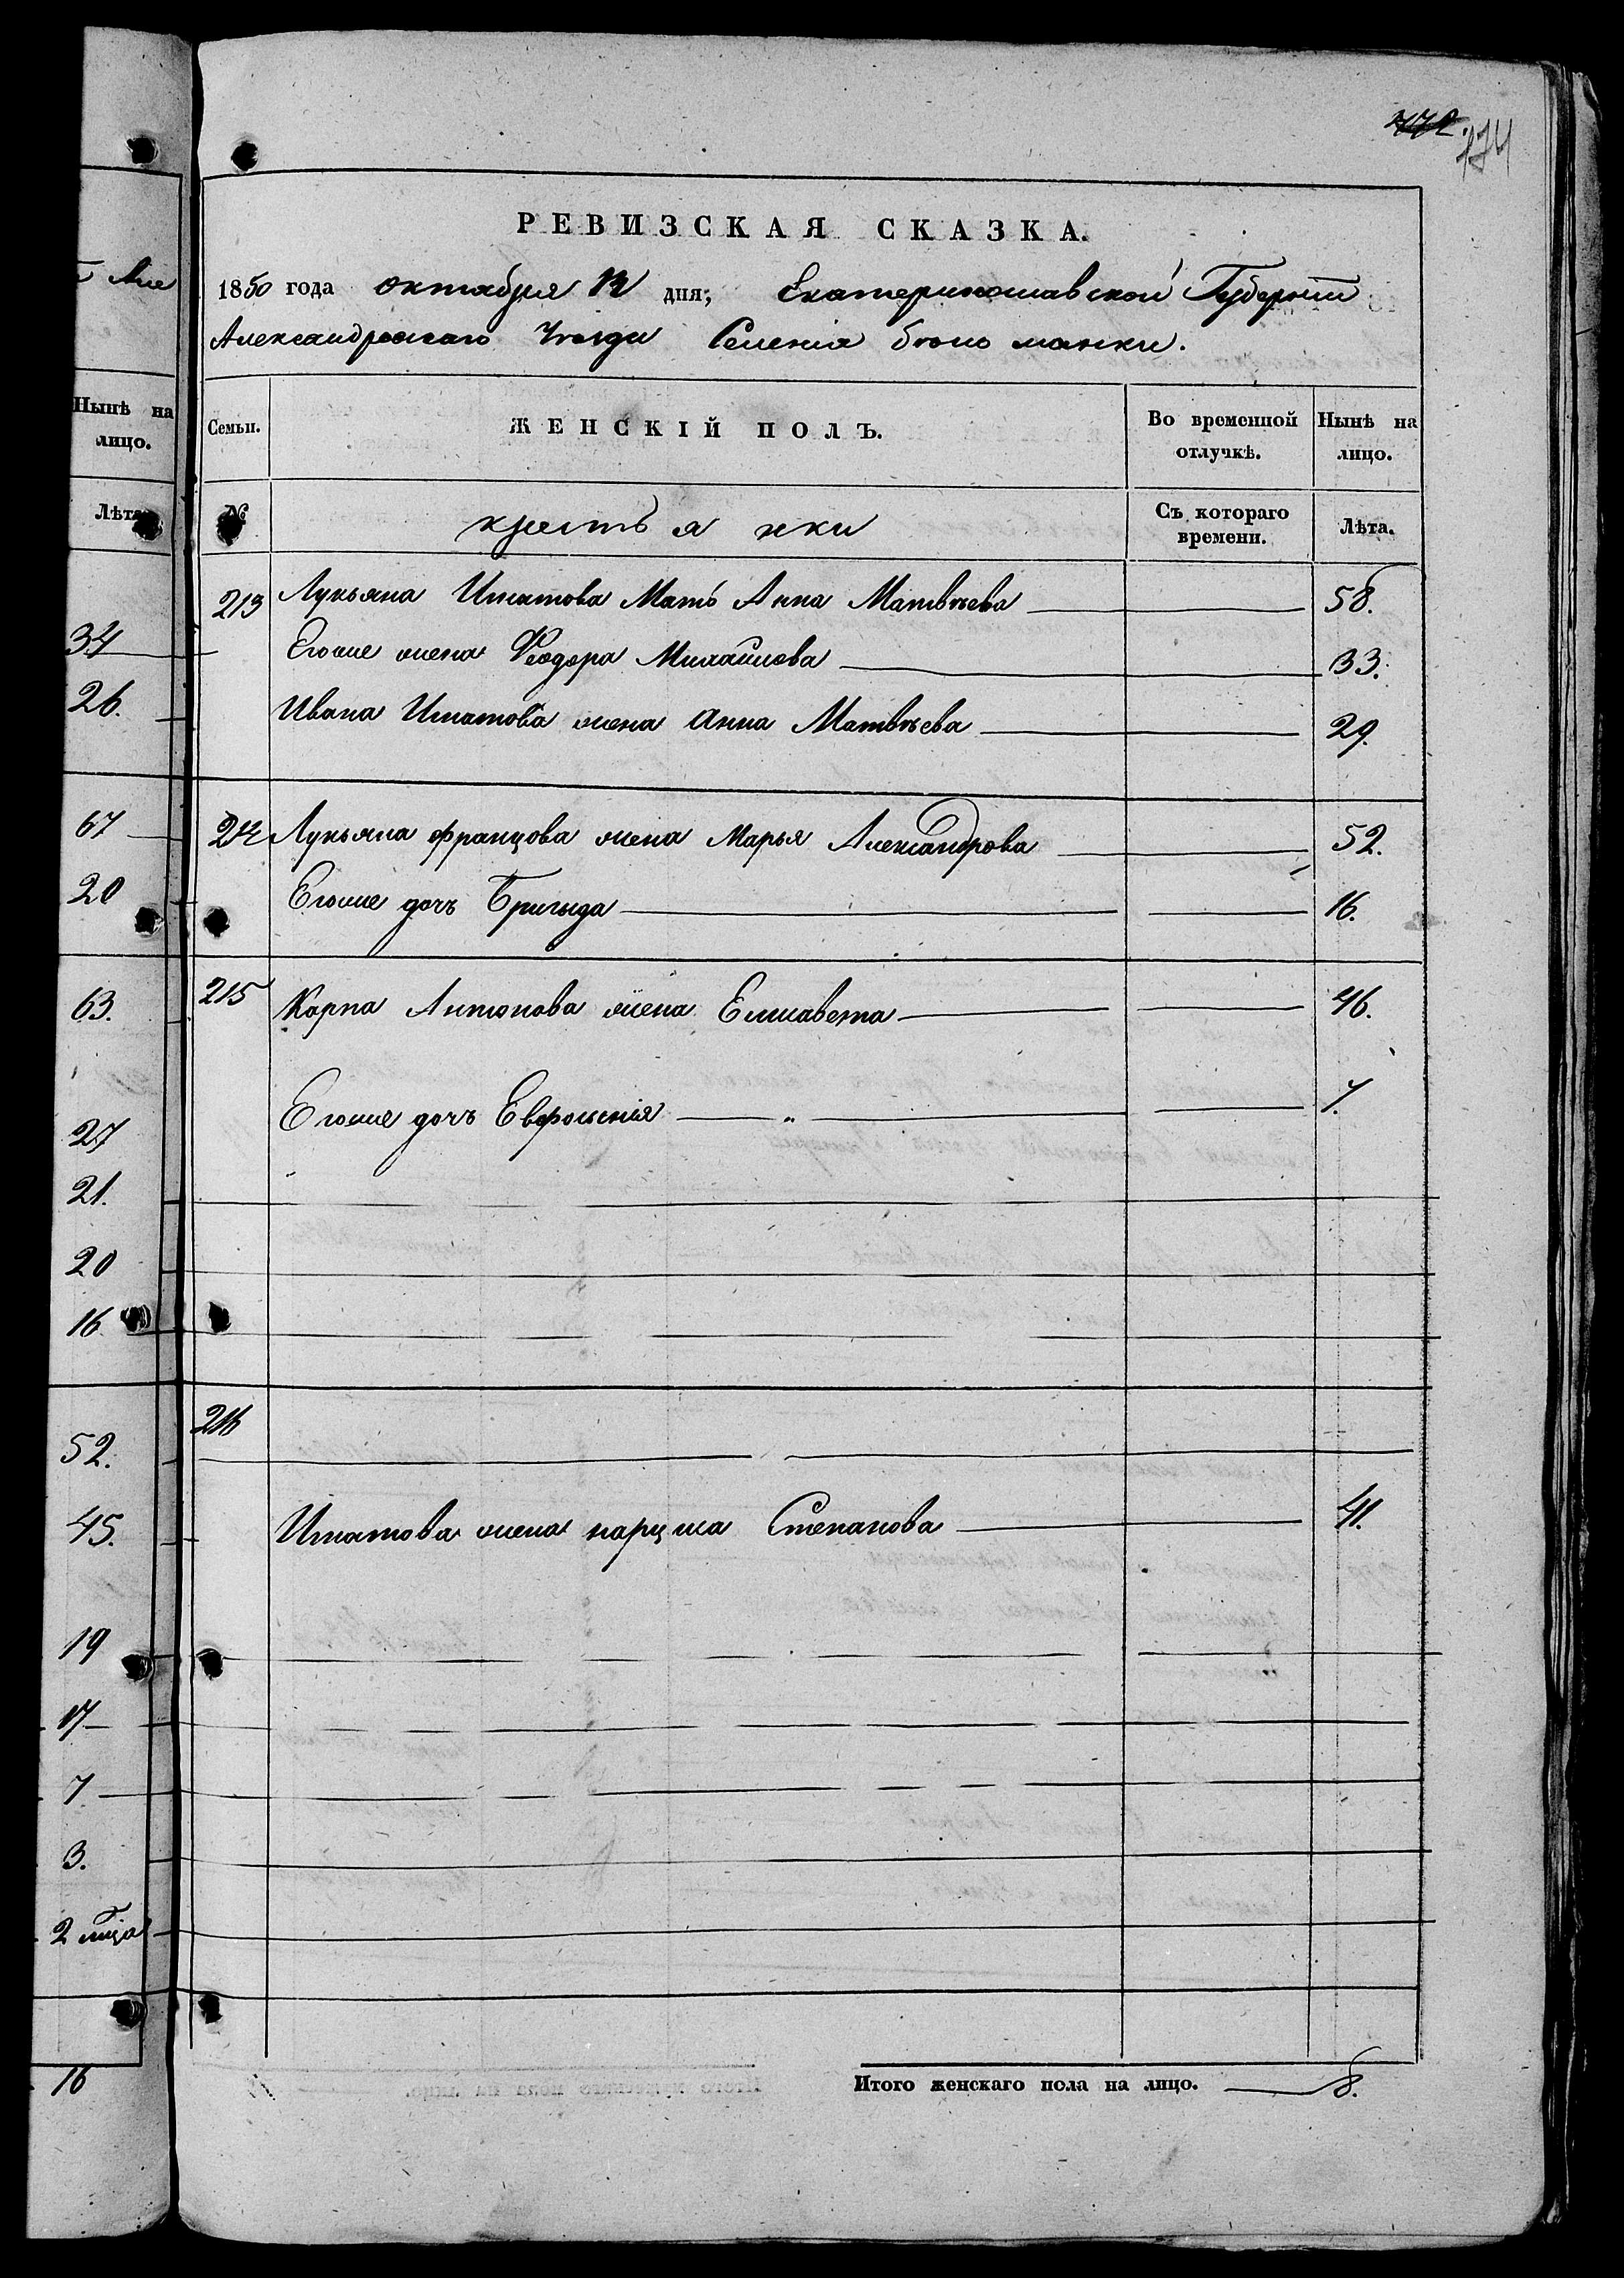 174
РЕВИЗСКАЯ СКАЗКА.
1850 года октября 12 дня; Екатеринославской Губерніи
Александровскаго Уезда Селенія
Семьи. ЖЕНСКІЙ ПОЛЪ. Во временной отлучкѣ. Нынѣ на лицо.
№ крестьянки Съ котораго времени. Лѣта.
213 Лукьяна Игнатова Мать Анна Матвѣева 58.
Егоже жена Феодора Михайлова 33.
Ивана Игнатова жена Анна Матвѣева 29.
214 Лукьяна Францова жена Марья Александрова 52.
Егоже дочь Бригыда 16.
215 Карпа Антонова жена Елисавета 46.
Егоже дочь Евфросинія 7.
216
Игнатова жена Степанова 41.
Итого женскаго пола на лицо. 8.
Нынѣ на
лицо.
Лѣта
34
26.
67
20
63.
27
21.
20
16
52.
45.
19
17
7
3.
2
16